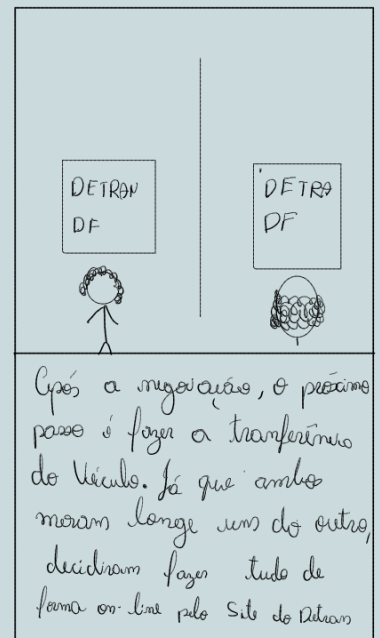 DETRAN
DF
DETRA
DF
Após a negociação, o próximo
passo é fazer a tranferência
do Veículo. Já que ambos
moram longe um do outro,
decidiram fazer tudo de
forma on-line pelo Site do Detran